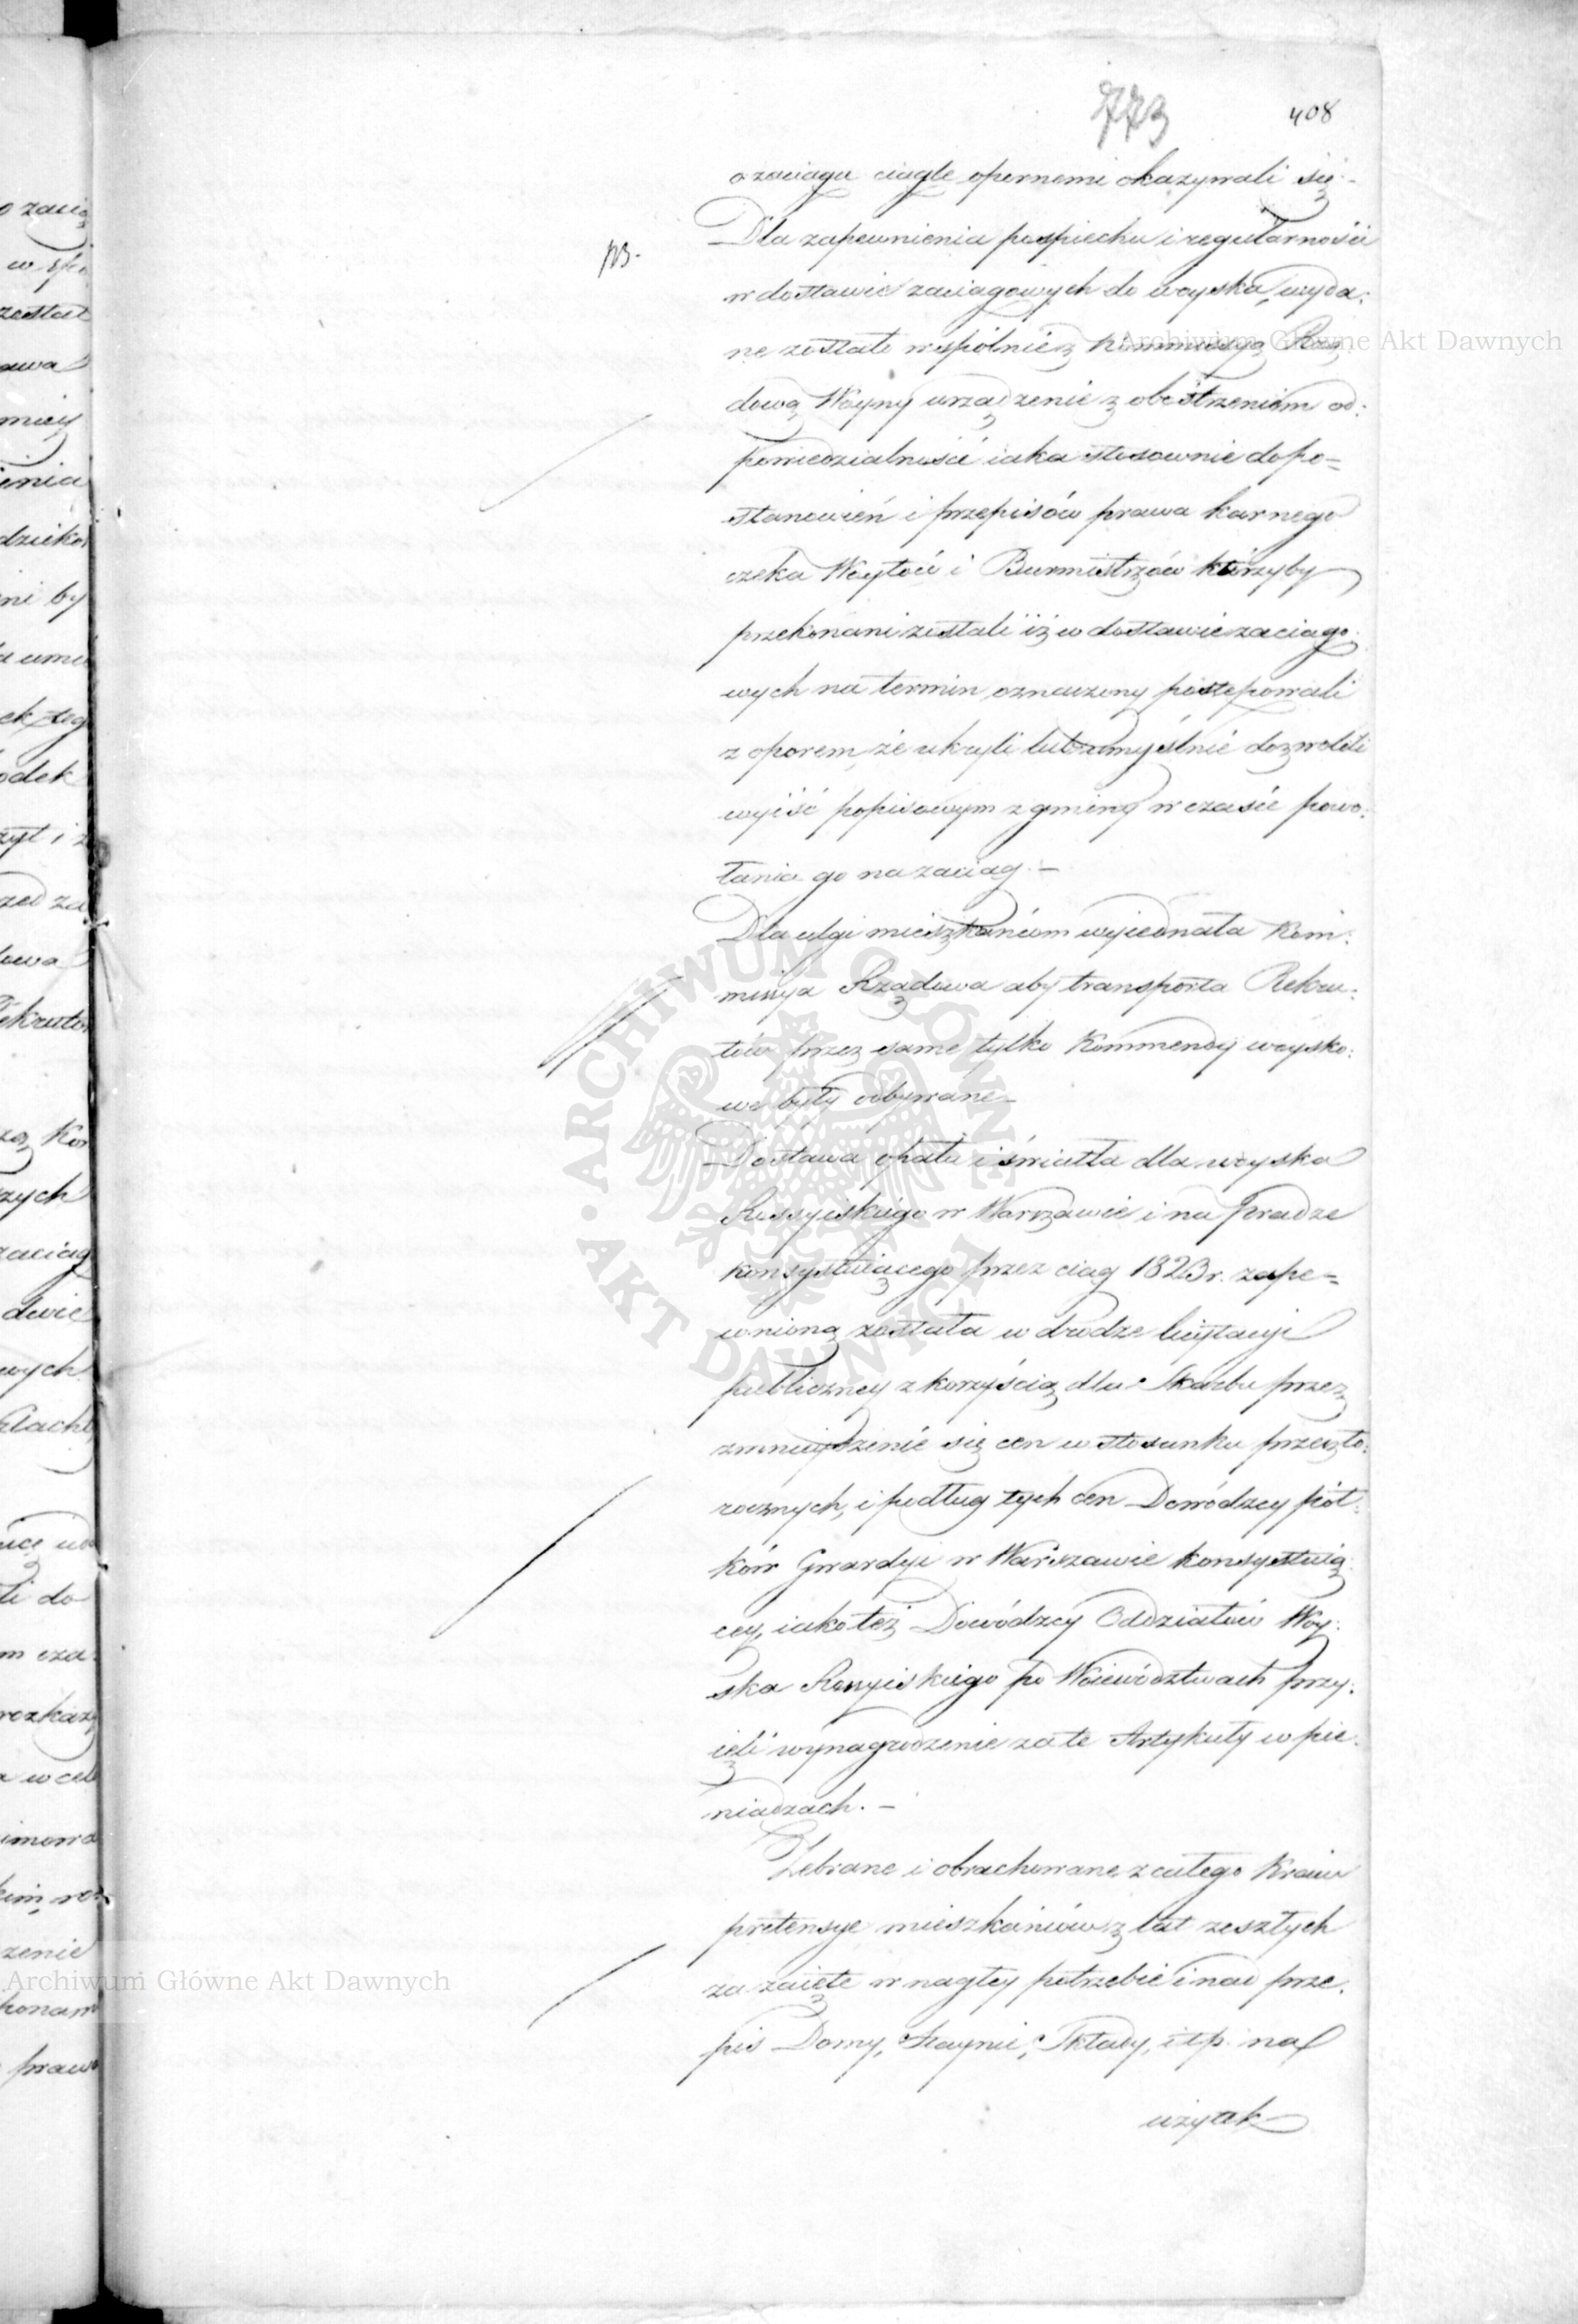 773 408
o zaciągu ciągle opornemi okazywali się.-
Dla zapewnienia pospiechu i regularności
w dostawie zaciągowych do woyska, wyda:
ne zostało wspólnie z Kommissyą Rzą
dową Woyny urządzenie z obostrzeniem od:
powiedzialności iaka stosownie do po=
stanowień i przepisów prawa karnego
czeka Woytów i Burmistrzów którzyby
przekonani zostali iż w dostawie zaciągo
wych na termin oznaczony postępowali
z oporem, że ukryli lub umyślnie dozwolili
wyiść popisowym z gminy w czasie powo:
łania go na zaciąg.-
Dla ulgi mieszkańcom wyiednała Kom:
missya Rządowa aby transporta Rekru:
tów przez same tylko Kommendy woysko:
we były odbywane-
Dostawa opału i światła dla woyska
Rossyiskiego w Warszawie i na Pradze
konsystuiącego przez ciąg 1823 r. zape=
wnioną została w drodze licytacyi
publiczney z korzyścią dla Skarbu przez
zmnieyszenie się cen w stosunku przeszło:
rocznych, i podług tych cen Dowódzcy pół:
ków Gwardyi w Warszawie konsystuią
cey, iako też Dowódzcy Oddziałów Woy:
ska Rossyiskiego po Woiewództwach przy:
ięli wynagrodzenie za te Artykuły w pie:
niądzach.-
Zebrane i obrachowane z całego Kraiu
pretensye mieszkańców z lat zeszłych
za zaięte w nagłey potrzebie i nad prze:
pis Domy, Staynie, Składy, i t.p. na
użytek
Archiwum Główne Akt Dawnych
ARCHIWUM GŁÓWNE
AKT DAWNYCH
Archiwum Główne Akt Dawnych